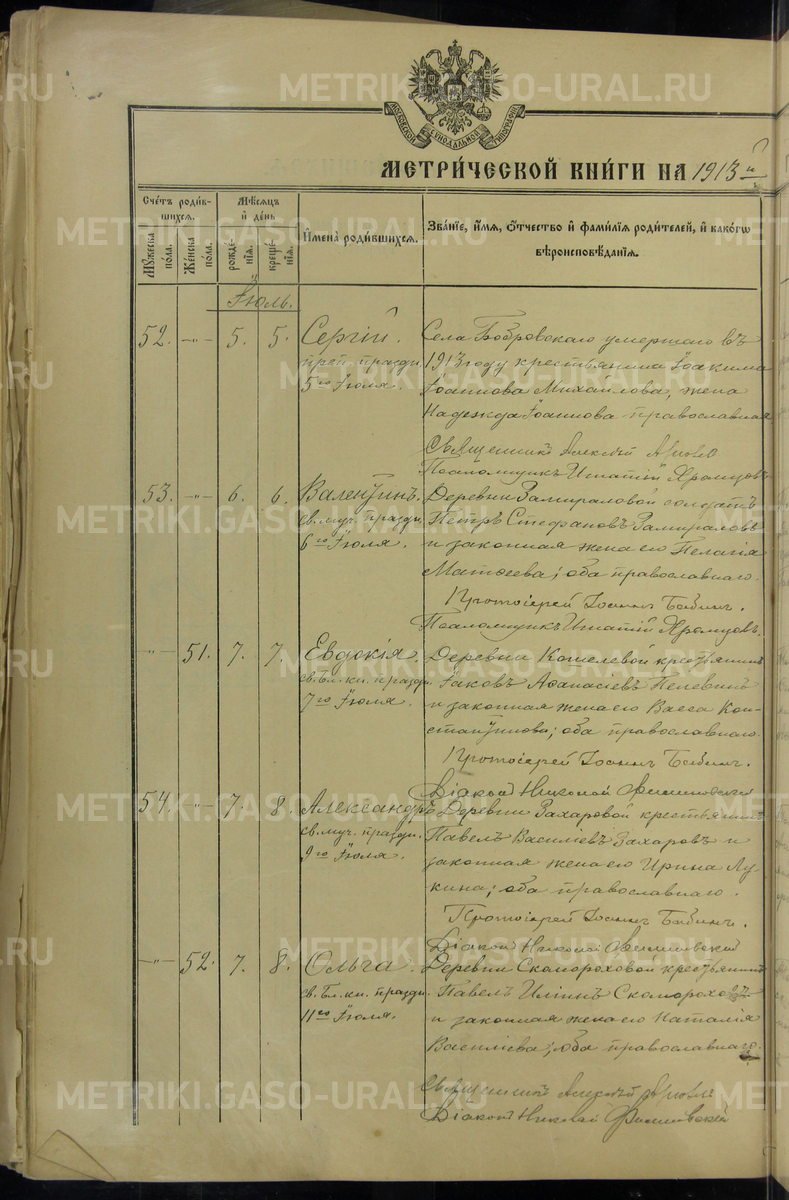 МОСКОВСКОЙ СѴНОДАЛЬНОЙ ТИПОГРАФІИ
МЕТРИ́ЧЕСКОЙ КНИ́ГИ НА 1913й
Сче́тъ роди́в-
шихсѧ.
Мꙋ́жеска по́ла.
Же́нска по́ла.
Мѣ́сѧцъ
и҆ де́нь
рожде́-
нїѧ.
креще́-
нїѧ.
И҆мена̀ роди́вшихсѧ.
Зва́нїе, и҆́мѧ, ѻ҆́тчество и҆ фами́лїѧ роди́телей, и҆ како́гѡ
вѣроисповѣ́данїѧ.
Іюль.
52. -"- 5. 5. Сергій.
преп. праздн.
5го Іюля.
Села Бобровскаго умершаго въ
1913 году крестьянина Іоакима
Іоаннова Михайлова, жена
Надежда Іоаннова православная
Священникъ Алексій
Псаломщикъ Игнатій
53. -"- 6. 6. Валентинъ.
св. муч. праздн.
6го Іюля.
Деревни Замираловой солдатъ
Петръ Стефановъ Замираловъ
и законная жена его Пелагія
Матѳеева; оба православнаго.
Протоіерей Іоаннъ Бабинъ.
Псаломщикъ Игнатій
-"- 51. 7. 7. Евдокія.
св. Бл. кн. праздн.
7го Іюля.
Деревни Кошелевой крестьянинъ
Іаковъ Аѳанасіевъ Пелевинъ
и законная жена его Васса Кон-
стантинова; оба православнаго.
Протоіерей Іоаннъ Бабинъ.
Діаконъ Николай
54. -"- 7. 8. Александръ
св. муч. праздн.
9го Іюля.
Деревни Захаровой крестьянинъ
Павелъ Василіевъ Захаровъ и
законная жена его Ирина Лу-
кина; оба православнаго.
Протоіерей Іоаннъ Бабинъ.
Діаконъ Николай
-"- 52. 7. 8. Ольга.
св. Бл. кн. праздн.
11го Іюля.
Деревни Скомороховой крестьянинъ
Павелъ Иліинъ Скомороховъ
и законная жена его Наталія
Василіева; оба православнаго.
Священникъ Алексій
Діаконъ Николай
METRIKI.GASO-URAL.RU